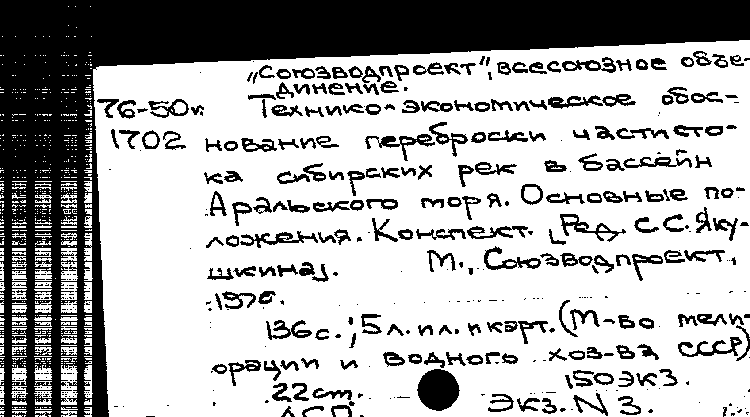 „Союзводпроект", всесоюзное объе-
динение.
76-50к Технико-экономическое обос-
1702 нование переброски части сто-
ка сибирских рек в бассейн
Аральского моря. Основные по-
ложения. Конспект. [Ред. С.С. Яку-
шкина]. М., Союзводпроект,
136 с.; 5 л. ил. и карт. (М-во мели-
орации и водного хоз-ва СССР)
22 cm. 150 экз.
Экз. N 3.